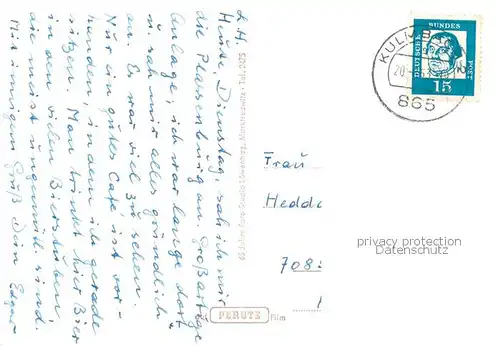 L. H.
Heute, Dienstag, sah ich mir
die Plassenburg an. Großartige
Anlage, ich war lange dort
u. sah mir alles gründlich
an. E war viel zu sehen.
Nur ein gutes Café ist vor-
handen, in dem ich gerade
sitzen. Man trinkt hier Bier
in den vielen Bierstuben,
die meist ungemütl. sind.
Mit innigem Gruß Dein Edgar
65 Jahre Foto-Studio Löwenhag, Tel. 2575
PERUTZ film
KULMB
20.
865
DEUTSCHE BUNDES POST
15
Frau
Hedd
708
privacy protection
Datenschutz